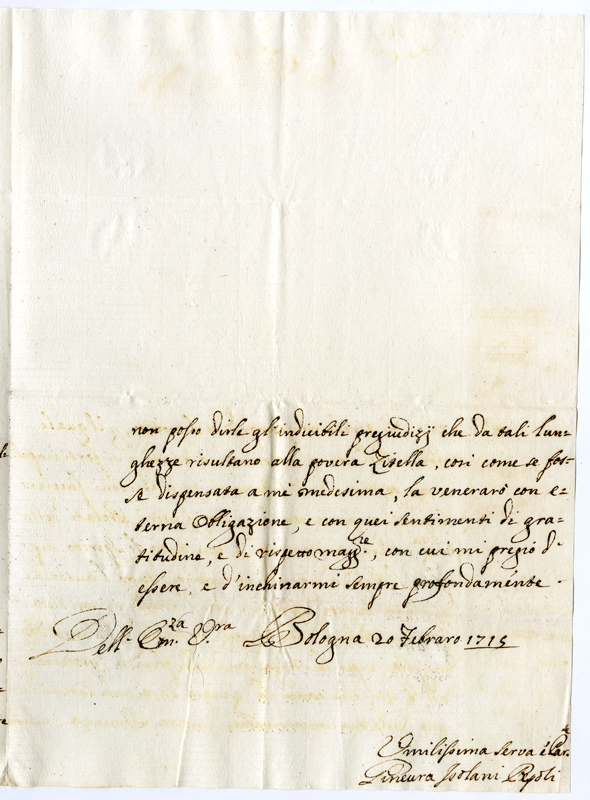 non posso dirle gl'indicibili pregiudizij che da tali lun=
ghezze risultano alla povera Zitella, cosi come se fos=
se dispensata a me medesima, la venerarò con e=
terna Obligazione, e con quei sentimenti di gra=
titudine, e di rispetto magg.re, con cui mi pregio d'
essere, e d'inchinarmi sempre profondamente.
Dell' Em.za V.ra Bologna 20 Febraro 1715
Umilissima serva
Ginevra Isolani